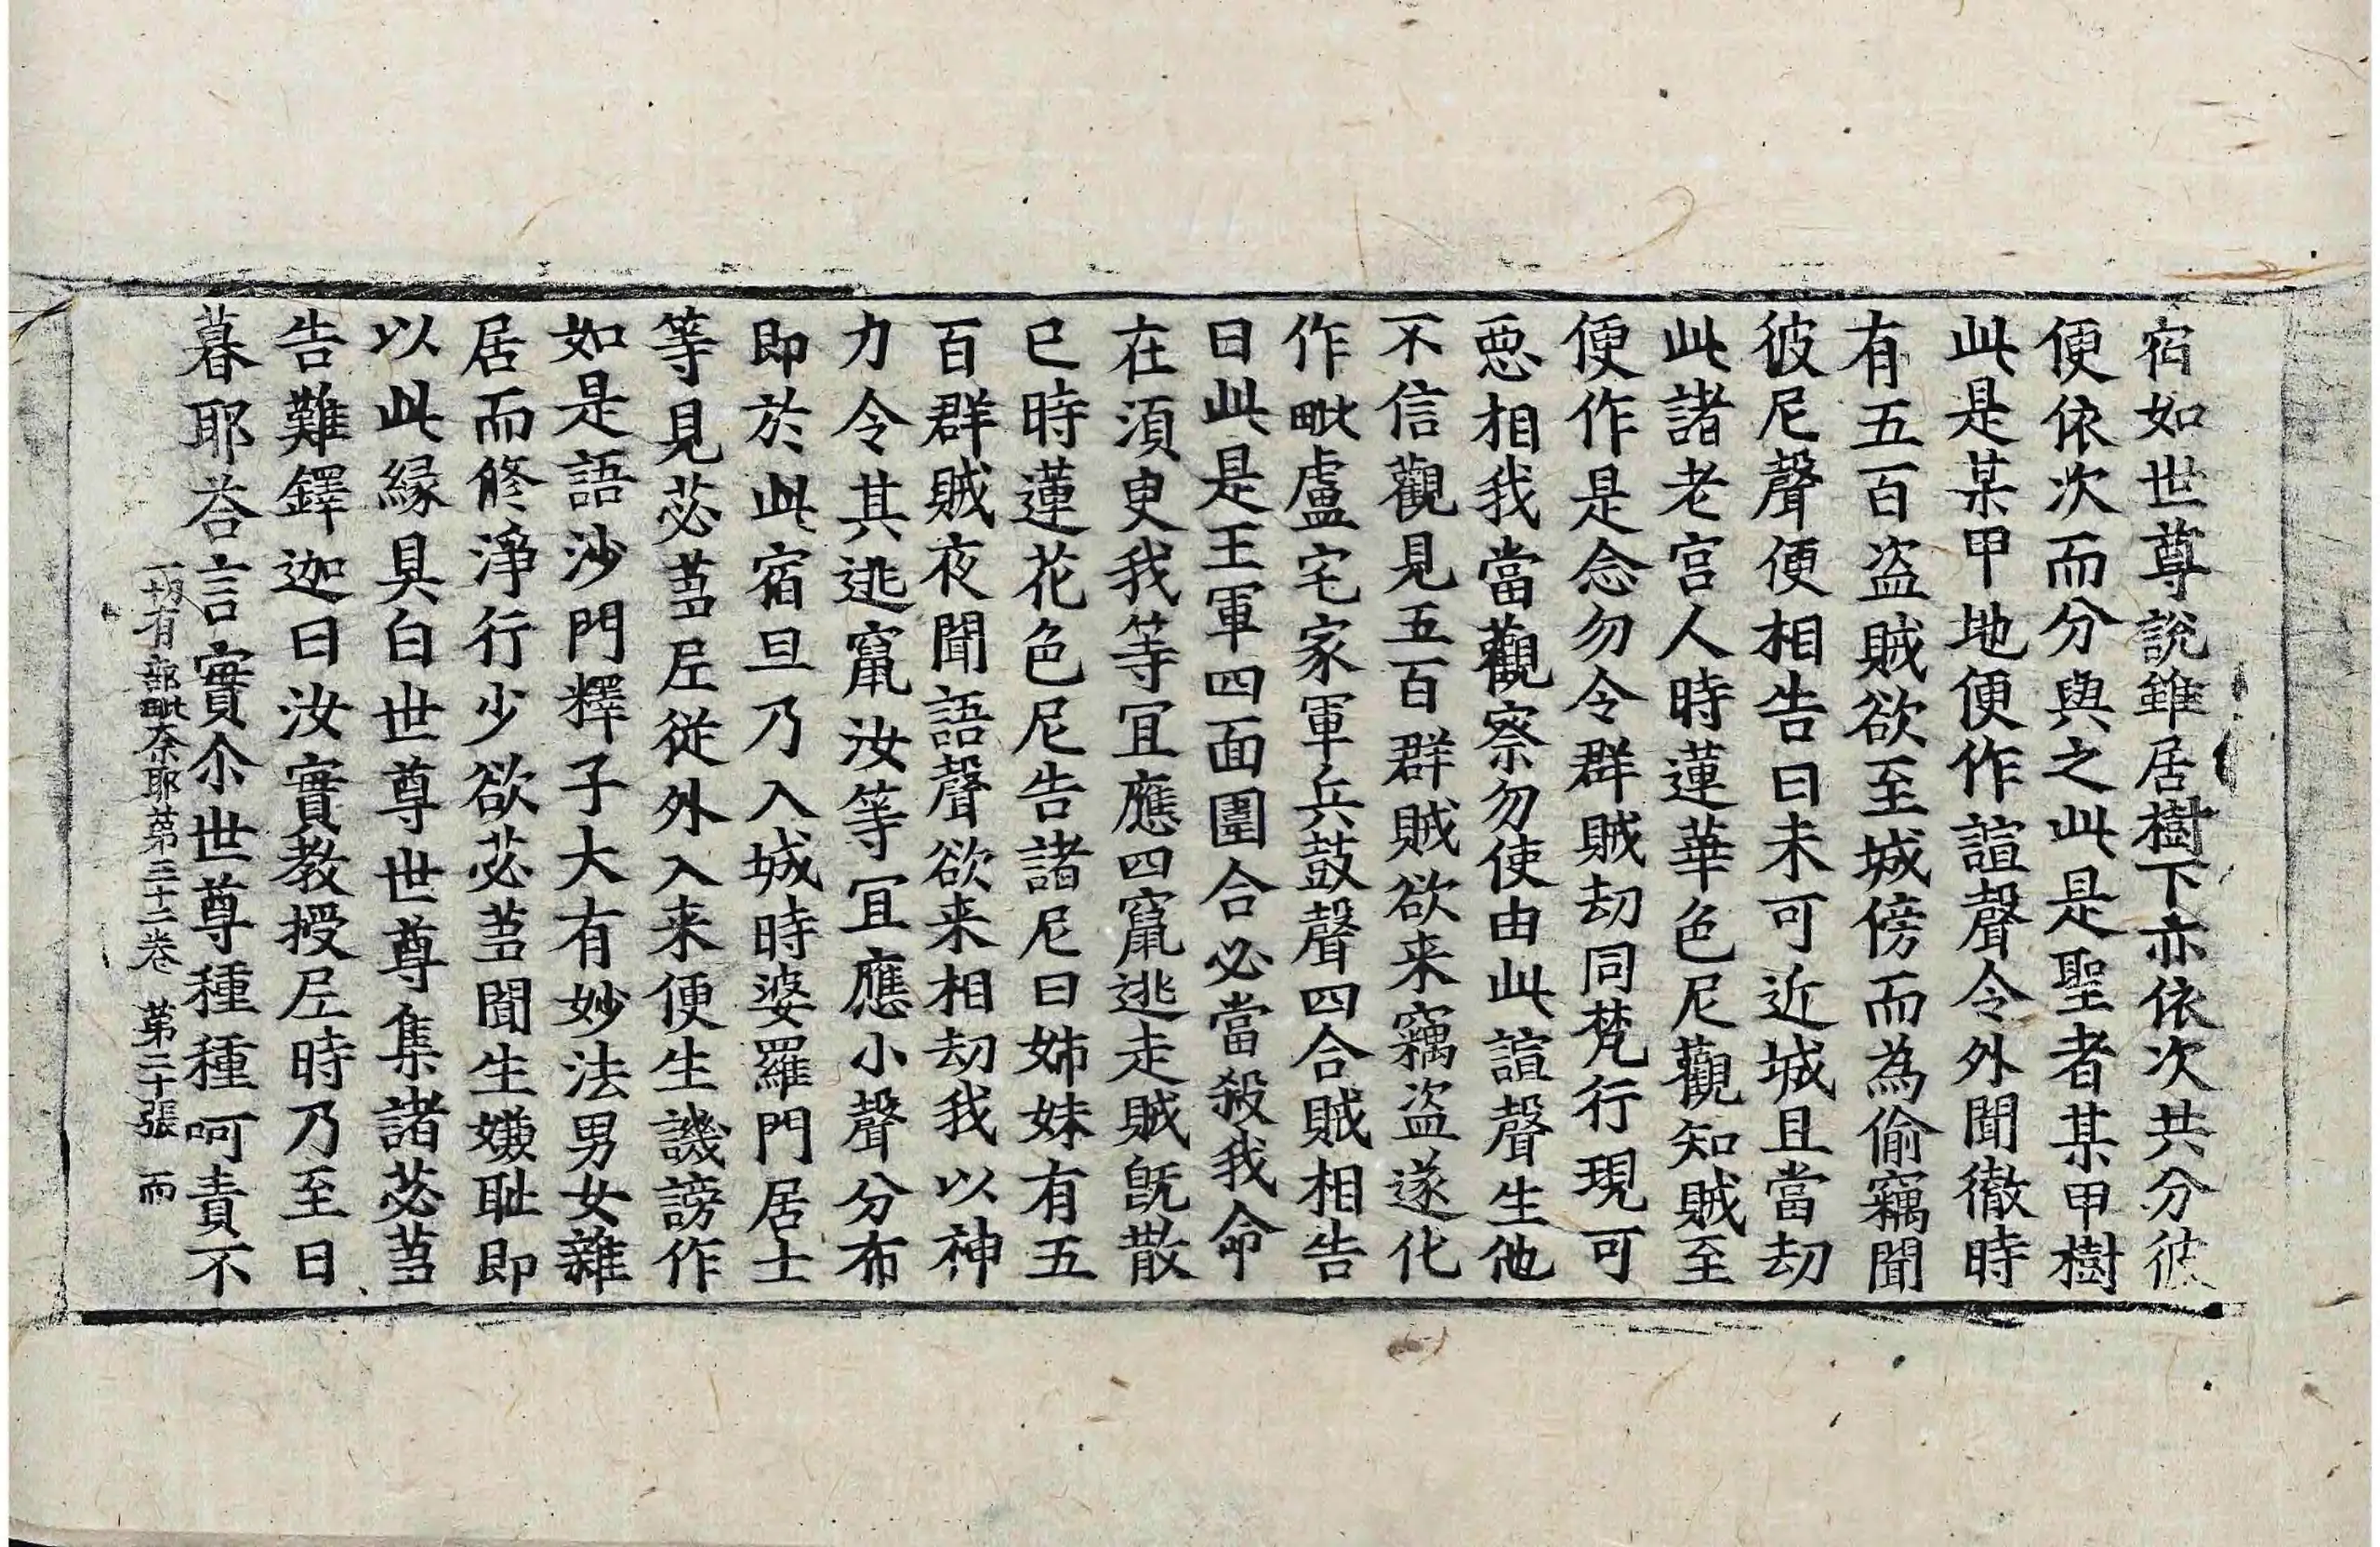 宿如世尊說雖居樹下亦依次共分彼
便依次而分與之此是聖者某甲樹
此是某甲地便作諠聲令外聞徹時
有五百盜賊欲至城傍而為偷竊聞
彼尼聲便相告曰未可近城且當劫
此諸老宫人時蓮華色尼觀知賊至
便作是念勿令群賊劫同梵行現可
惡相我當觀察勿使由此諠聲生他
不信觀見五百群賊欲来竊盜遂化
作毗盧宅家軍兵鼓聲四合賊相告
曰此是王軍四面圍合必當殺我命
在須臾我等冝應四竄逃走賊旣散
已時蓮花色尼告諸尼曰姊妹有五
百群賊夜聞語聲欲来相劫我以神
力令其逃竄汝等冝應小聲分布
即於此宿旦乃入城時婆羅門居士
等見苾蒭尼從外入来便生譏謗作
如是語沙門釋子大有妙法男女雜
居而修淨行少欲苾蒭聞生嫌耻即
以此緣具白世尊世尊集諸苾蒭
告難鐸迦曰汝實教授尼時乃至日
暮耶荅言實尒世尊種種呵責不
一切有部毗奈耶第三十二卷 第二十張 而